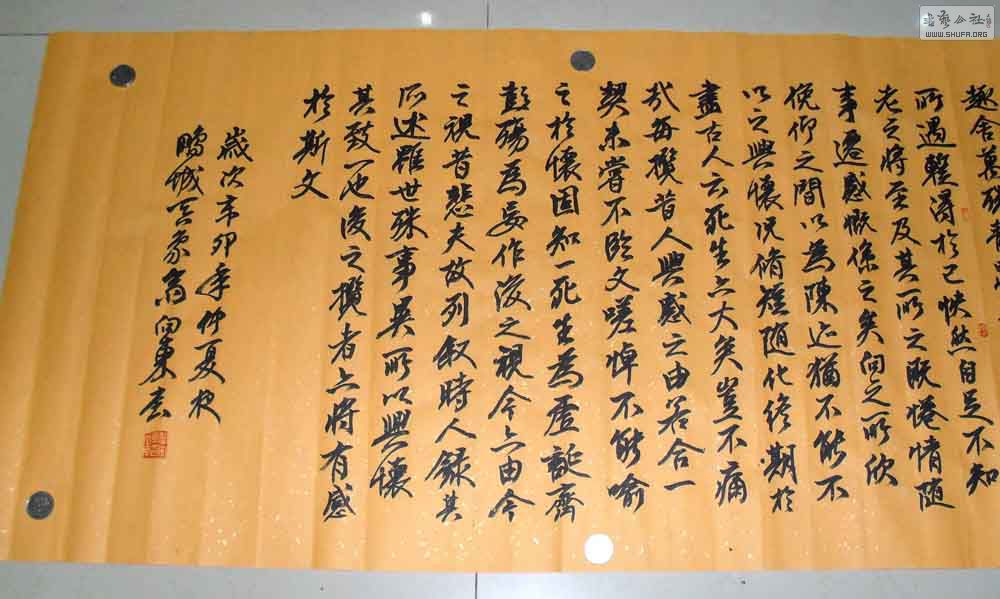 趣舍萬殊靜
所遇蹔得於己怏然自足不知
老之將至及其所之既惓情隨
事遷感慨係之矣向之所欣
俛仰之間以為陳迹猶不能不
以之興懷況脩短隨化終期於
盡古人云死生亦大矣豈不痛
哉每攬昔人興感之由若合一
契未嘗不臨文嗟悼不能喻
之於懷固知一死生為虛誕齊
彭殤為妄作後之視今亦由今
之視昔悲夫故列叙時人錄其
所述雖世殊事異所以興懷
其致一也後之攬者亦將有感
於斯文
歲次辛卯年仲夏夜
鵬城向東書
書藝公社
WWW.SHUFA.ORG